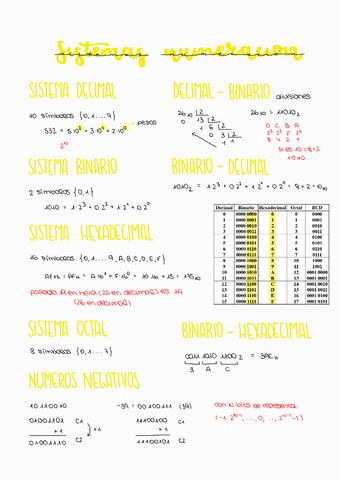 Sistemas numeración
SISTEMA DECIMAL
10 símbolos {0,1....9}
532 = 5·10² + 3·10¹ + 2·10⁰
pesos
SISTEMA BINARIO
2 símbolos {0,1}
1010 = 1·2³ + 0·2² + 1·2¹ + 0·2⁰
SISTEMA HEXADECIMAL
16 símbolos {0,1...9,A,B,C,D,E,F}
AF16 =
= 10·16 + 15 = 175₁₀
(26 en decimal)
SISTEMA OCTAL
8 símbolos {0,1....7}
NÚMEROS NEGATIVOS
10110010
01001101 C1
+1
01001110 C2
+1
-39 = 00100111 (39)
11011000 C1
+1
11100101 C2
DECIMAL - BINARIO divisiones
26₁₀ |2
0 13 |2
1 6 |2
0 3 |2
1 1
26₁₀ = 11010₂
D C B A
2³ 2² 2¹ 2⁰
8 4 2 1
si es 10 = 8+2
1010
BINARIO - DECIMAL
1010₂ = 1·2³ + 0·2² + 1·2¹ + 0·2⁰ = 8+2 = 10₁₀
Decimal Binario Hexadecimal Octal BCD
0 0000 0000 0 0 0000
1 0000 0001 1 1 0001
2 0000 0010 2 2 0010
3 0000 0011 3 3 0011
4 0000 0100 4 4 0100
5 0000 0101 5 5 0101
6 0000 0110 6 6 0110
7 0000 0111 7 7 0111
8 0000 1000 8 10 1000
9 0000 1001 9 11 1001
10 0000 1010 A 12 0001 0000
11 0000 1011 B 13 0001 0001
12 0000 1100 C 14 0001 0010
13 0000 1101 D 15 0001 0011
14 0000 1110 E 16 0001 0100
15 0000 1111 F 17 0001 0101
BINARIO - HEXADECIMAL
0011 1010 1100₂ = 3AC
3 A C
con N bits se representa
(-1·2ᴺ⁻¹, ..., 0, ..., 2ᴺ⁻¹-1)